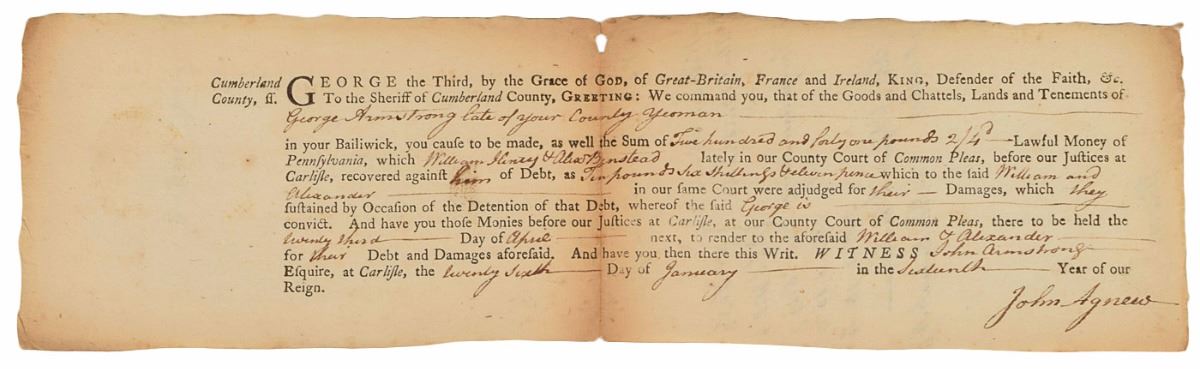 Cumberland GEORGE the Third, by the Grace of GOD, of Great-Britain, France and Ireland, KING, Defender of the Faith, &c.
County, ss. To the Sheriff of Cumberland County, GREETING: We command you, that of the Goods and Chattels, Lands and Tenements of
George Armstrong late of your County Yeoman
in your Bailiwick, you cause to be made, as well the Sum of Five hundred and forty one pounds 2/4d Lawful Money of
Pennsylvania, which William Henry & Alexr Benstead lately in our County Court of Common Pleas, before our Justices at
Carlisle, recovered against him of Debt, as Ten pounds six Shillings & eleven pence which to the said William and
Alexander in our same Court were adjudged for their Damages, which they
sustained by Occasion of the Detention of that Debt, whereof the said George is
convict. And have you those Monies before our Justices at Carlisle, at our County Court of Common Pleas, there to be held the
twenty third Day of April next, to render to the aforesaid William & Alexander
for their Debt and Damages aforesaid. And have you then there this Writ. WITNESS John Armstrong
Esquire, at Carlisle, the twenty Sixth Day of January in the Sixteenth Year of our
Reign.
John Agnew